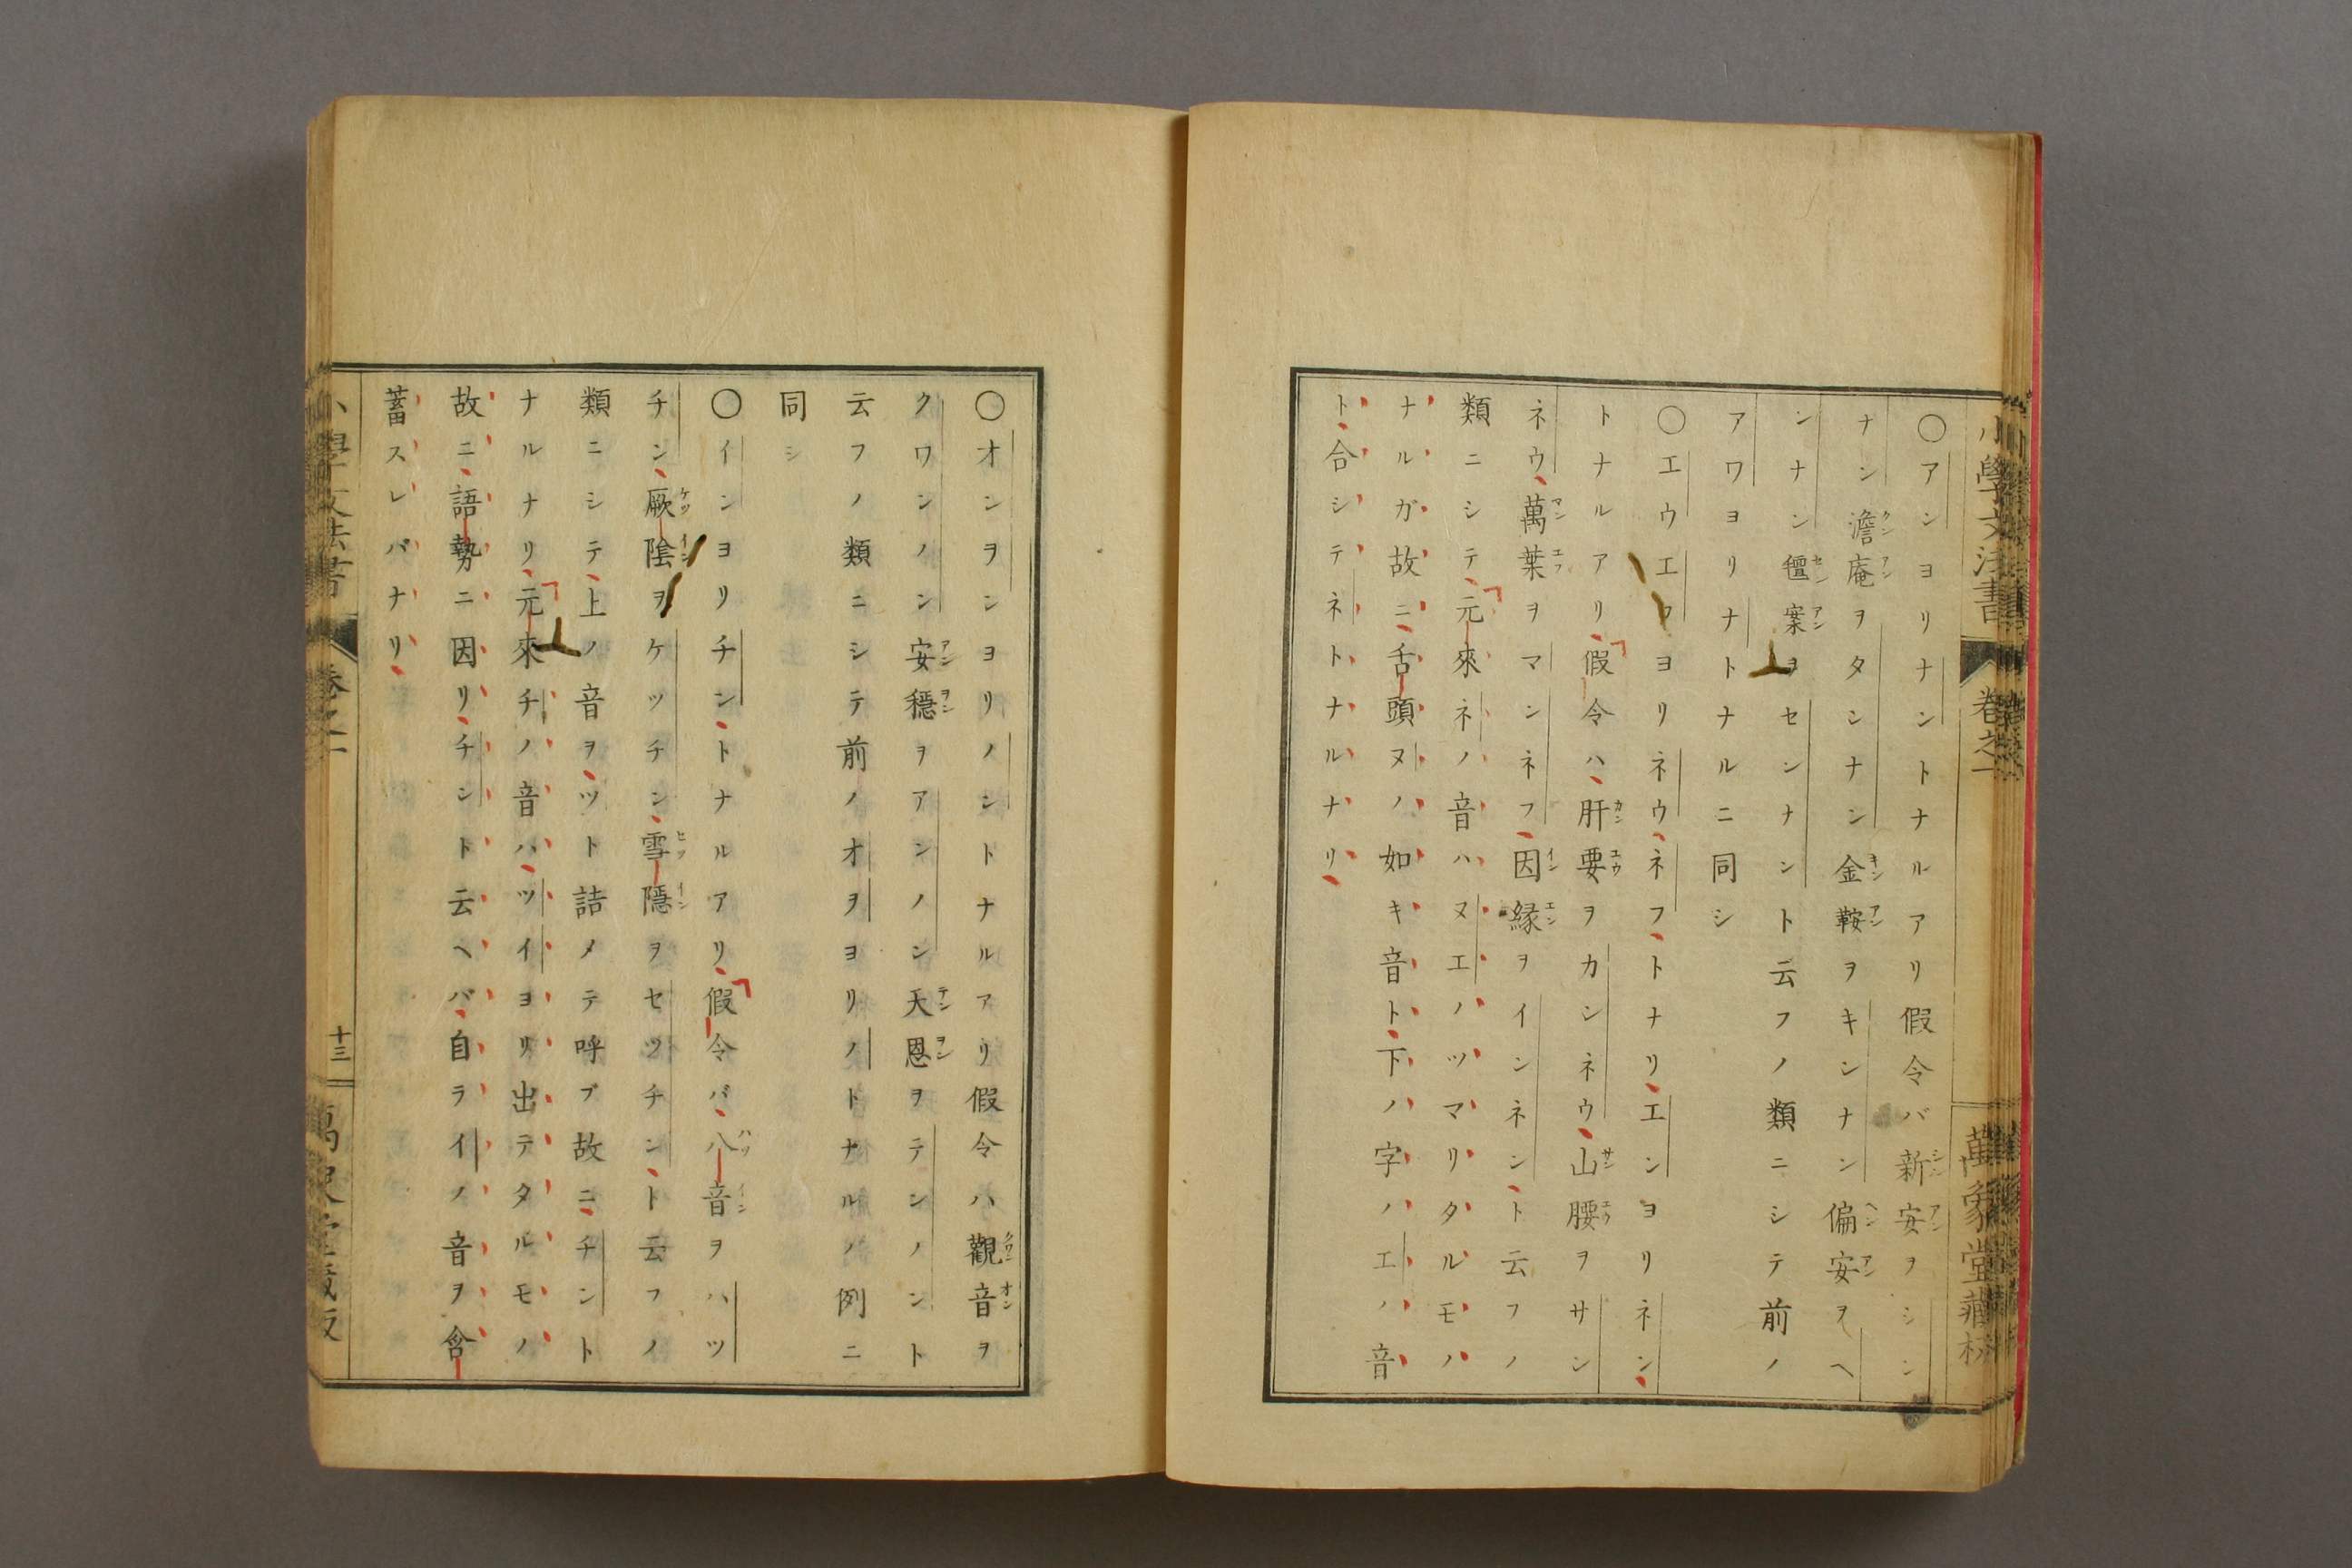 小學文法書 卷之一 萬象堂藏板
〇アンヨリナントナルアリ假令バ新安ヲシン
ナン澹庵ヲタンナン金鞍ヲキンナン偏安ヲヘ
ンナン氊案ヲセンナント云フノ類ニシテ前ノ
アワヨリナトナルニ同シ
〇エウエフヨリネウ、ネフ、トナリ、エンヨリネン、
トナルアリ、假令ハ、肝要ヲカンネウ、山腰ヲサン
ネウ、萬葉ヲマンネフ、因縁ヲインネン、ト云フノ
類ニシテ、元來ネノ音ハヌエノツマリタルモノ
ナルガ故ニ、舌頭ヌノ如キ音ト、下ノ字ノエノ音
ト、合シテネトナルナリ、
〇オンヲンヨリノントナルアリ假令ハ觀音ヲ
クワンノン安穩ヲアンノン天恩ヲテンノント
云フノ類ニシテ前ノオヲヨリノトナルノ例ニ
同シ
〇インヨリチン、トナルアリ、假令バ、八音ヲハツ
チン、厥陰ヲケツチン、雪隱ヲセツチン、ト云フノ
類ニシテ、上ノ音ヲ、ツト詰メテ呼ブ故ニ、チント
ナルナリ、元來チノ音ハ、ツイヨリ出テタルモノ
故ニ、語勢ニ因リ、チント云ヘバ、自ライノ音ヲ含
蓄スレバナリ、
小學文法書 卷之一 十三 萬象堂藏板